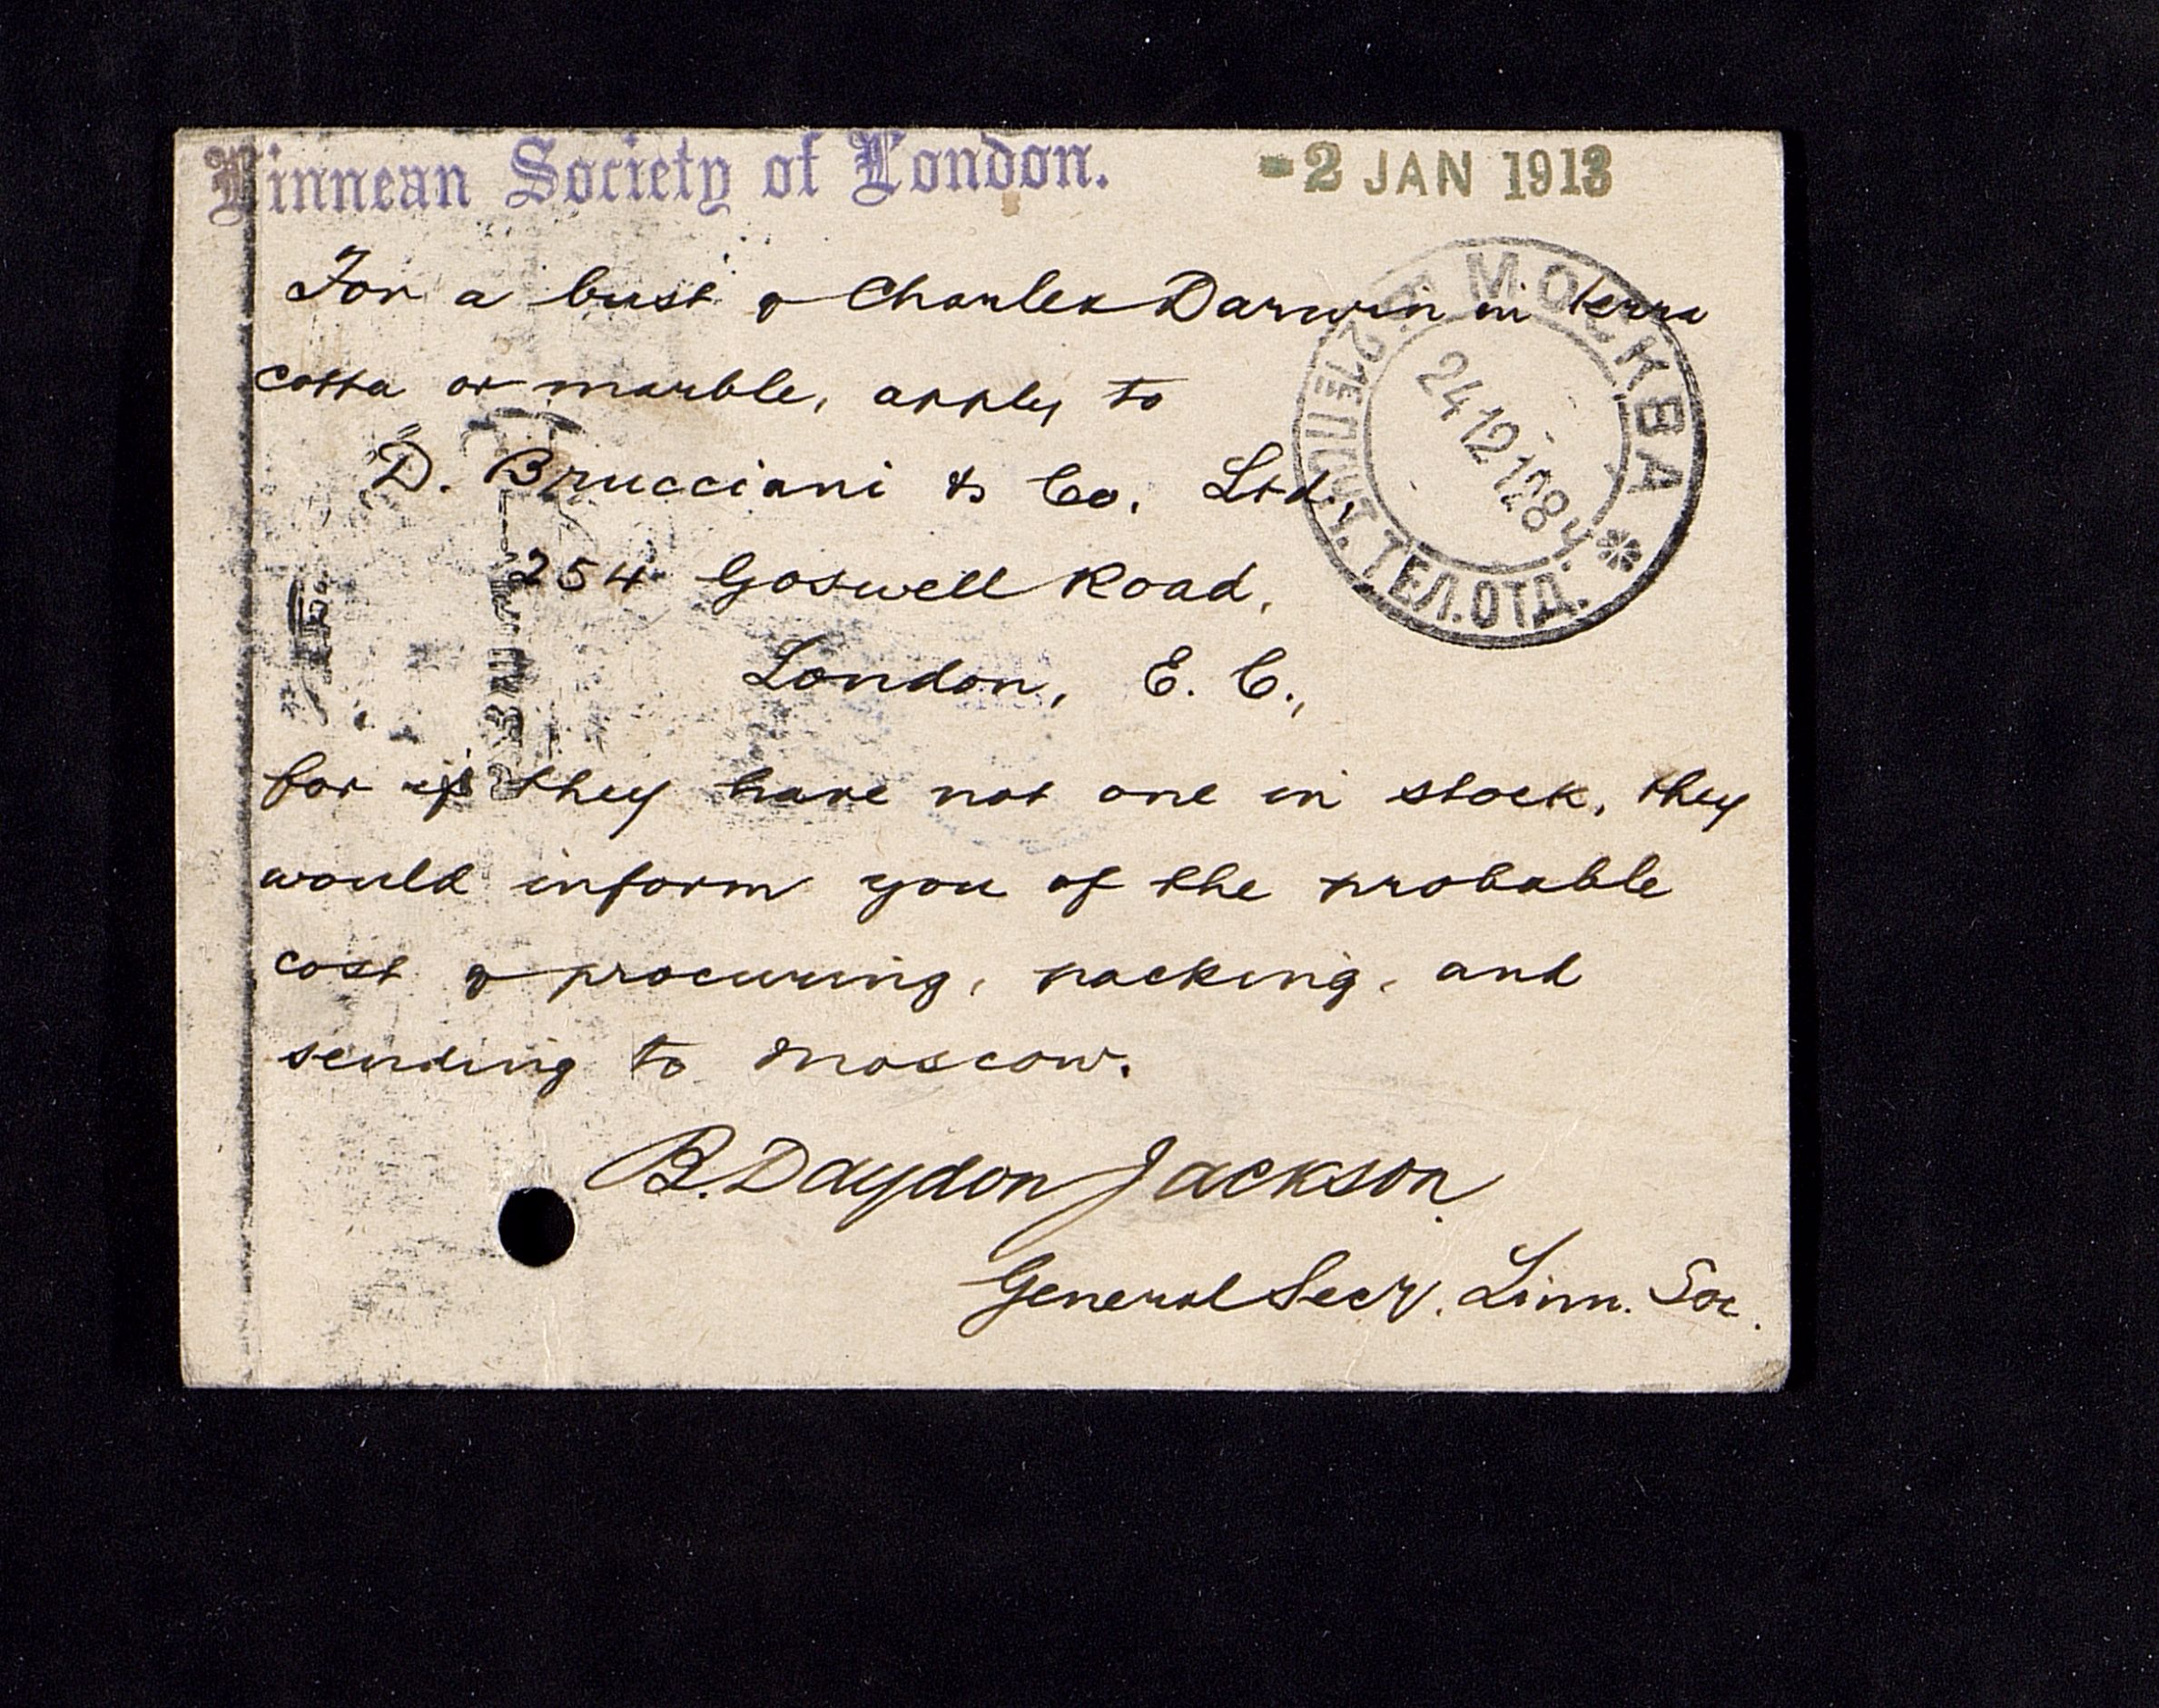 Linnean Society of London. -2 JAN 1913
For a bust of Charles Darwin in terra
cotta or marble, apply to
D. Brucciani & Co. Ltd.,
254 Goswell Road,
London, E. C.,
for if they have not one in stock, they
would inform you of the probable
cost of procuring, packing, and
sending to Moscow.
B. Daydon Jackson
General Secy. Linn. Soc.
МОСКВА
24 12 12
ТЕЛ. ОТД.